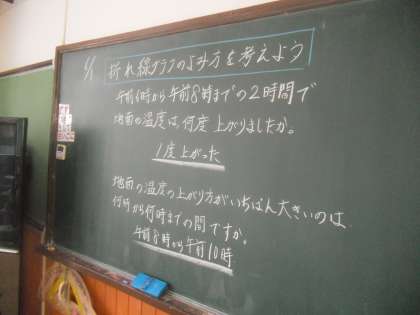 6/1 折れ線グラフのよみ方を考えよう
午前6時から午前8時までの2時間で
地面の温度は、何度上がりましたか。
1度上がった
地面の温度の上がり方がいちばん大きいのは
何時から何時までの間ですか。
午前8時から午前10時